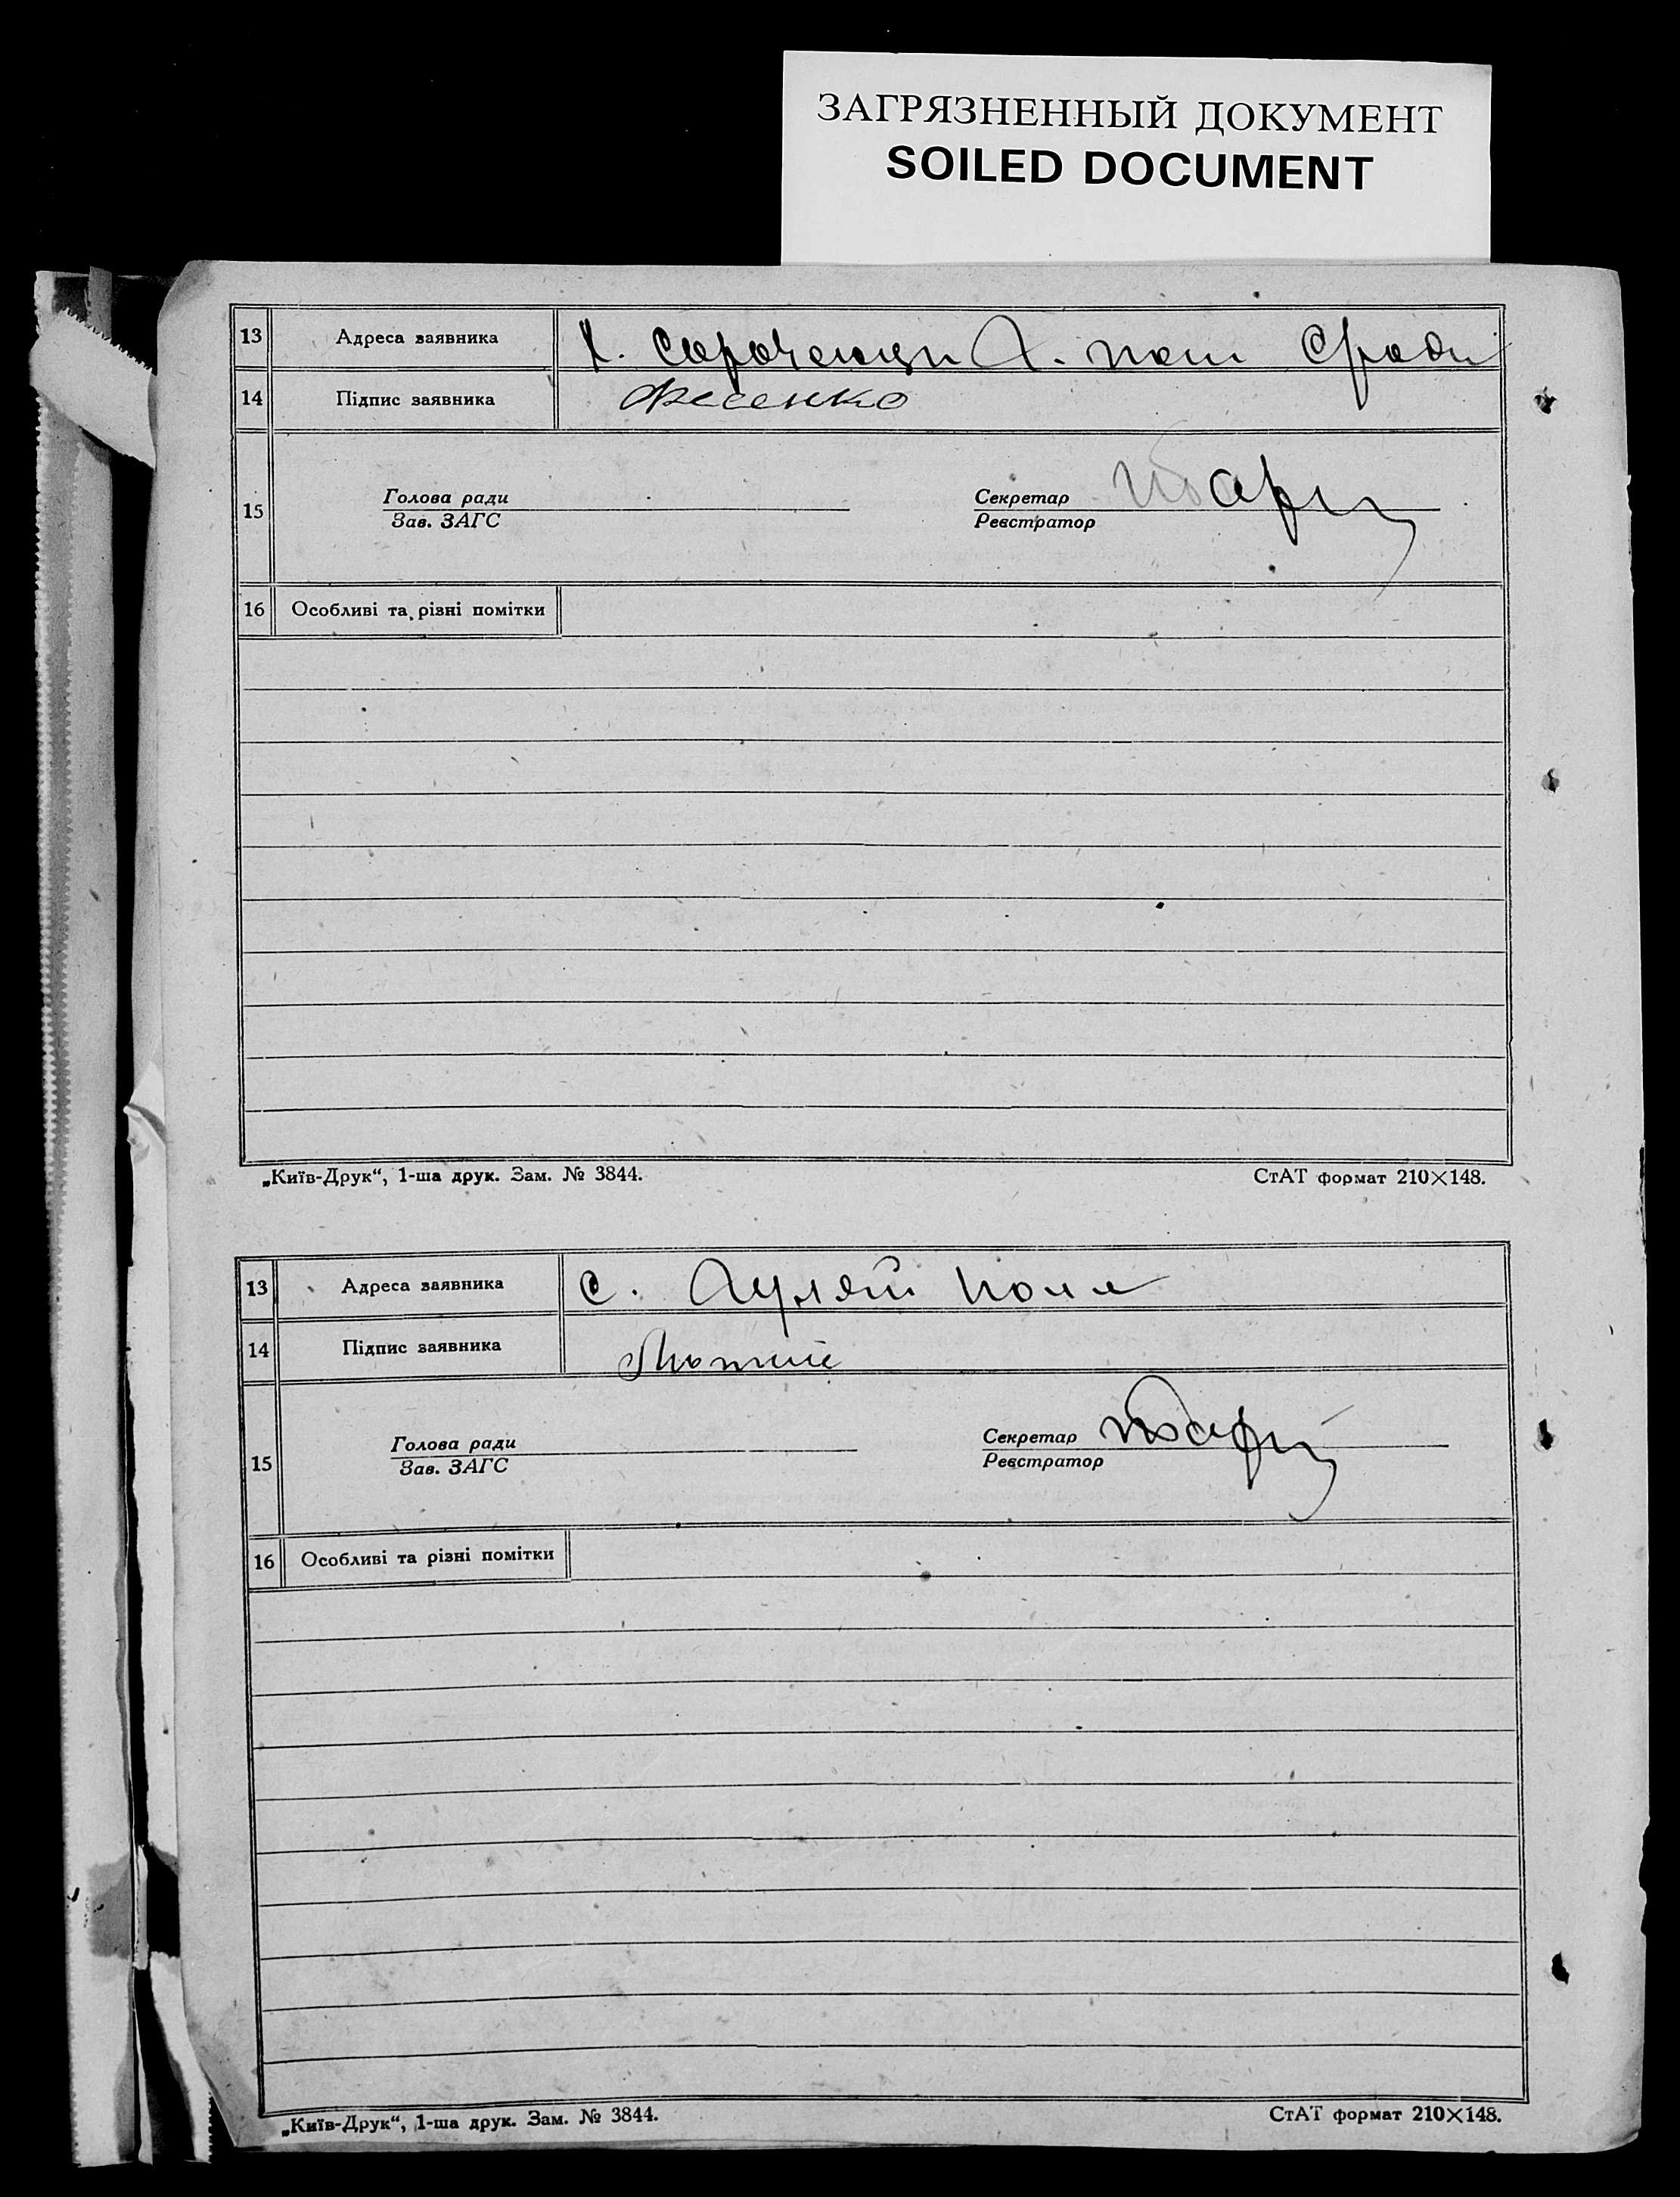 ЗАГРЯЗНЕННЫЙ ДОКУМЕНТ
SOILED DOCUMENT
13 Адреса заявника
14 Підпис заявника Фесенко
15 Голова ради Секретар
Зав. ЗАГС Реєстратор
16 Особливі та різні помітки
„Київ-Друк“, 1-ша друк. Зам. № 3844. СтАТ формат 210×148.
13 Адреса заявника с. Гуляй Поле
14 Підпис заявника
15 Голова ради Секретар
Зав. ЗАГС Реєстратор
16 Особливі та різні помітки
„Київ-Друк“, 1-ша друк. Зам. № 3844. СтАТ формат 210×148.